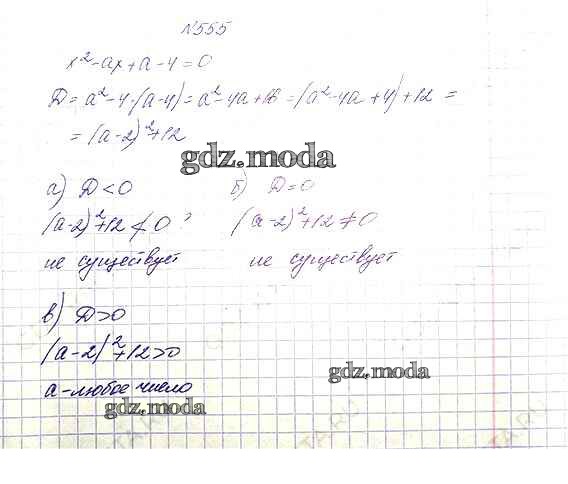 №555
x²-ax+a-4=0
D=a²-4·(a-4)=a²-4a+16=(a²-4a+4)+12=
=(a-2)²+12
gdz.moda
а) D<0
б) D=0
(a-2)²+12≮0
(a-2)²+12≠0
не существует
не существует
в) D>0
(a-2)²+12>0
gdz.moda
a-любое число
gdz.moda